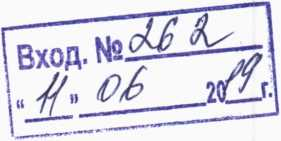 Вход. № 262
"11" 06 2019 г.